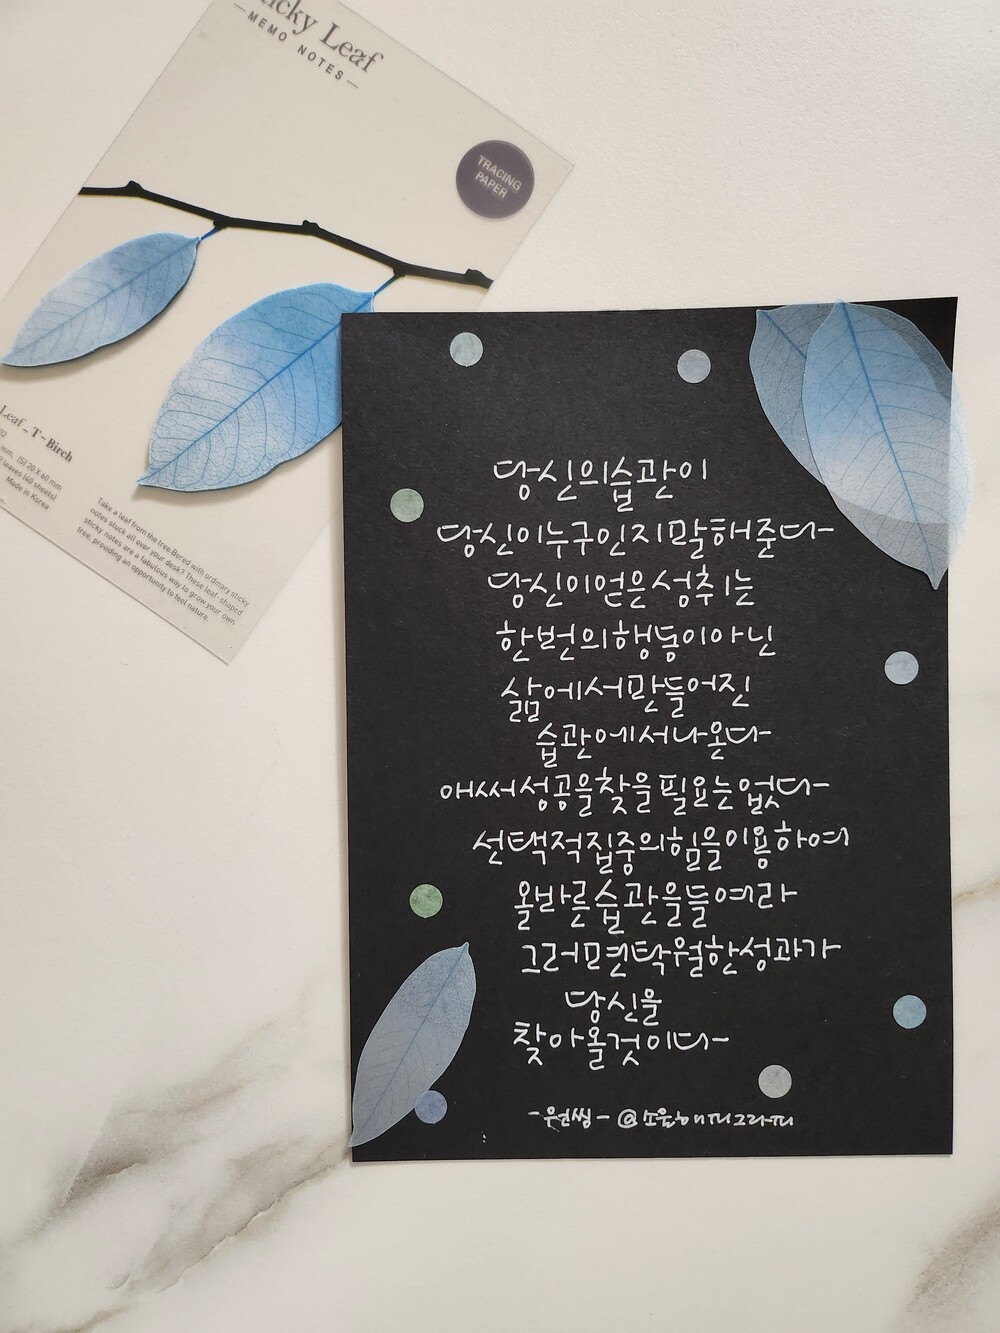 Sticky Leaf
—MEMO NOTES—
TRACING
PAPER
Leaf_T-Birch
mm, [S] 20 X 60 mm
leaves (60 sheets)
Made in Korea
Take a leaf from the tree.Bored with ordinary sticky
notes stuck all over your desk? These leaf-shaped
sticky notes are a fabulous way to grow your own
tree, providing an opportunity to feel nature.
당신의습관이
당신이누구인지말해준다
당신이얻은성취는
한번의행동이아닌
삶에서만들어진
습관에서나온다
애써성공을찾을필요는없다
선택적집중의힘을이용하여
올바른습관을들여라
그러면탁월한성과가
당신을
찾아올것이다
-우원씽- @소윰해피그라피